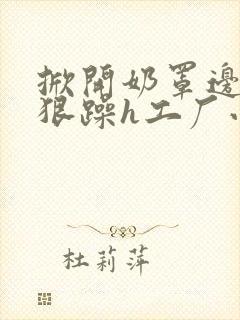 掀開奶罩邊
狠躁h工厂
杜莉萍